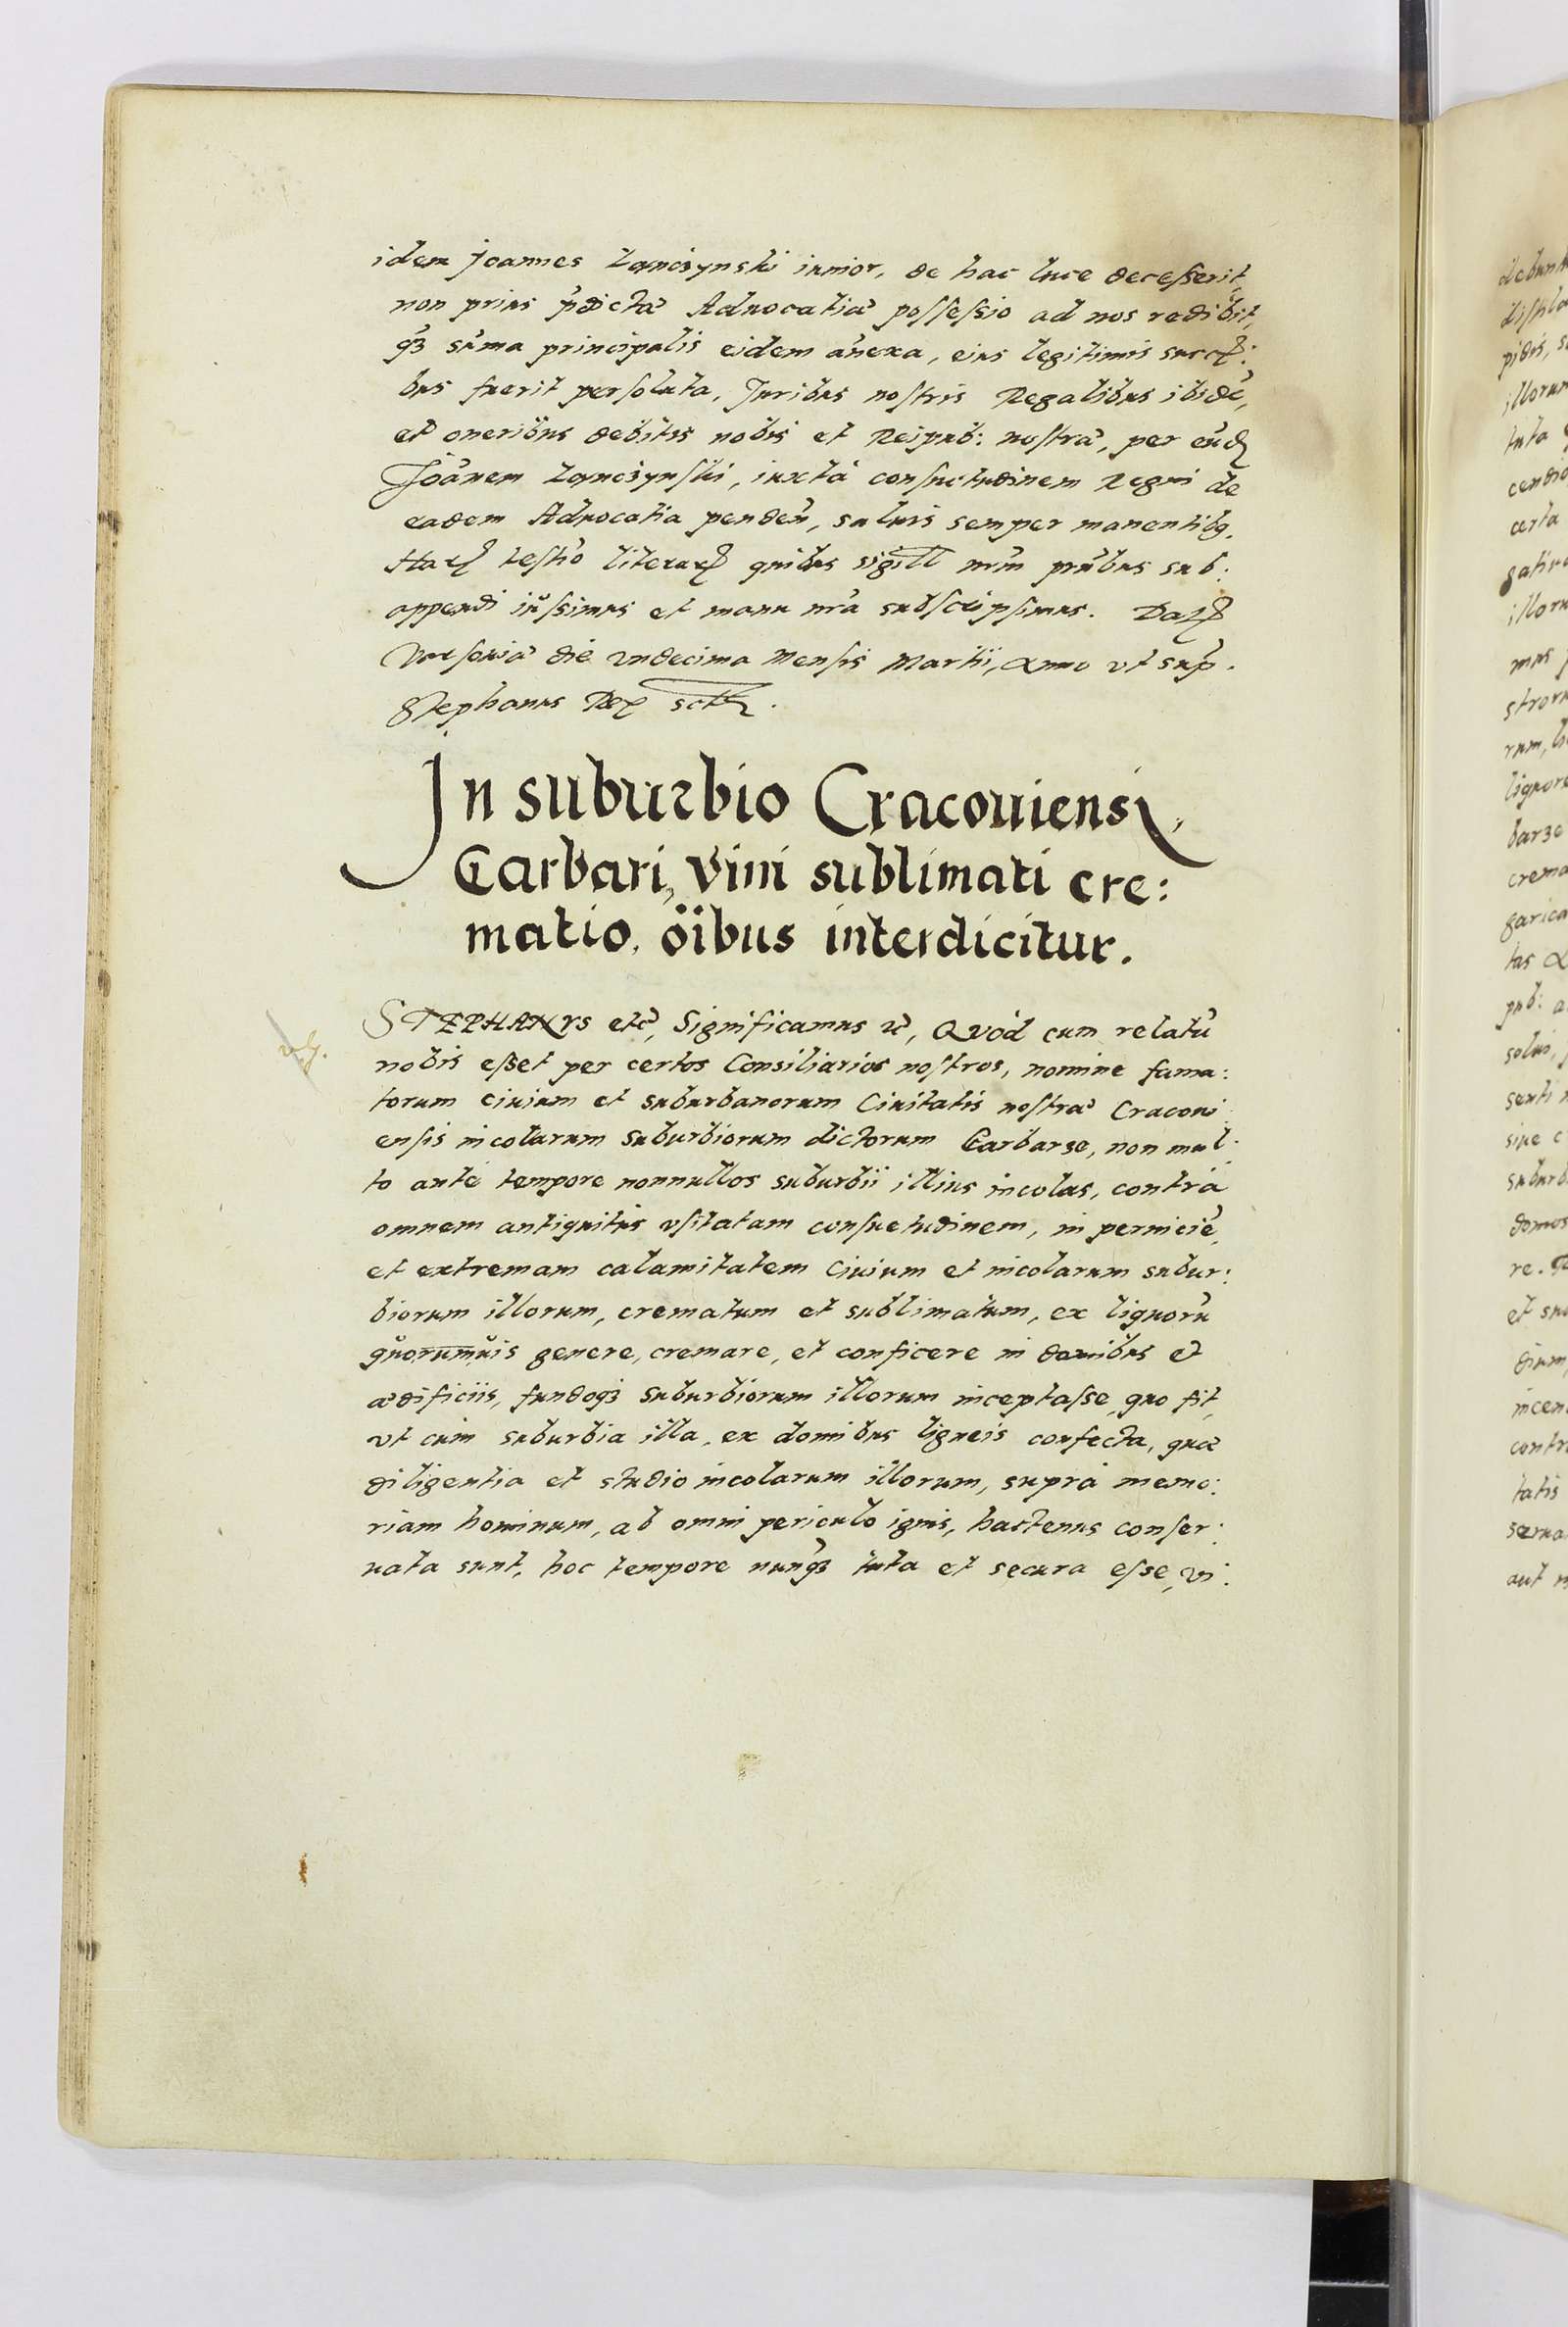 idem Joannes Lanczynski iunior, de hac luce decesserit,
non prius p̃dictæ Aduocatiæ possessio ad nos redibit,
q̃ꝫ sũma principalis eidem añexa, eius legitimis succ:
bus fuerit persoluta, Juribus nostris Regalibus ibidẽ,
et oneribus debitis nobis et Reipub: nostræ, per eũd
Joãnem Lanczynski, iuxtà consuetudinem Regni de
eadem Aduocatia pendeñ, saluis semper manentibꝫ.
Harꝝ testiõ literarꝝ quibus sigill nr̃m p̃ntibus sub:
appendi iussimus et manu nr̃a subscripsimus. Datꝝ
Varsouiæ die vndecima Mensis Martii, Anno vt sup̃.
Stephanus Rex sct.
In suburbio Cracouiensi,
Garbari, vini sublimati cre:
matio, õibus interdicitur.
STEPHANVS etc̃, Significamus ꝛc̃, Quòd cum relatũ
nobis esset per certos Consiliarios nostros, nomine fama:
torum ciuium et suburbanorum Ciuitatis nostræ Cracoui
ensis incolarum suburbiorum dictorum Garbarze, non mul:
to antè tempore nonnullos suburbii illius incolas, contrà
omnem antiquitùs vsitatam consuetudinem, in perniciẽ,
et extremam calamitatem Ciuium et incolarum subur:
biorum illorum, crematum et sublimatum, ex liquorũ
quorumuis genere, cremare, et conficere in domibus et
ædificiis, fundoqꝫ suburbiorum illorum inceptasse, quo fit,
vt cum suburbia illa, ex domibus ligneis confecta, quæ
diligentia et studio incolarum illorum, suprà memo:
riam hominum, ab omni periculo ignis, hactenus conser:
uata sunt, hoc tempore nunq̃ꝫ tuta et secura esse, vi: